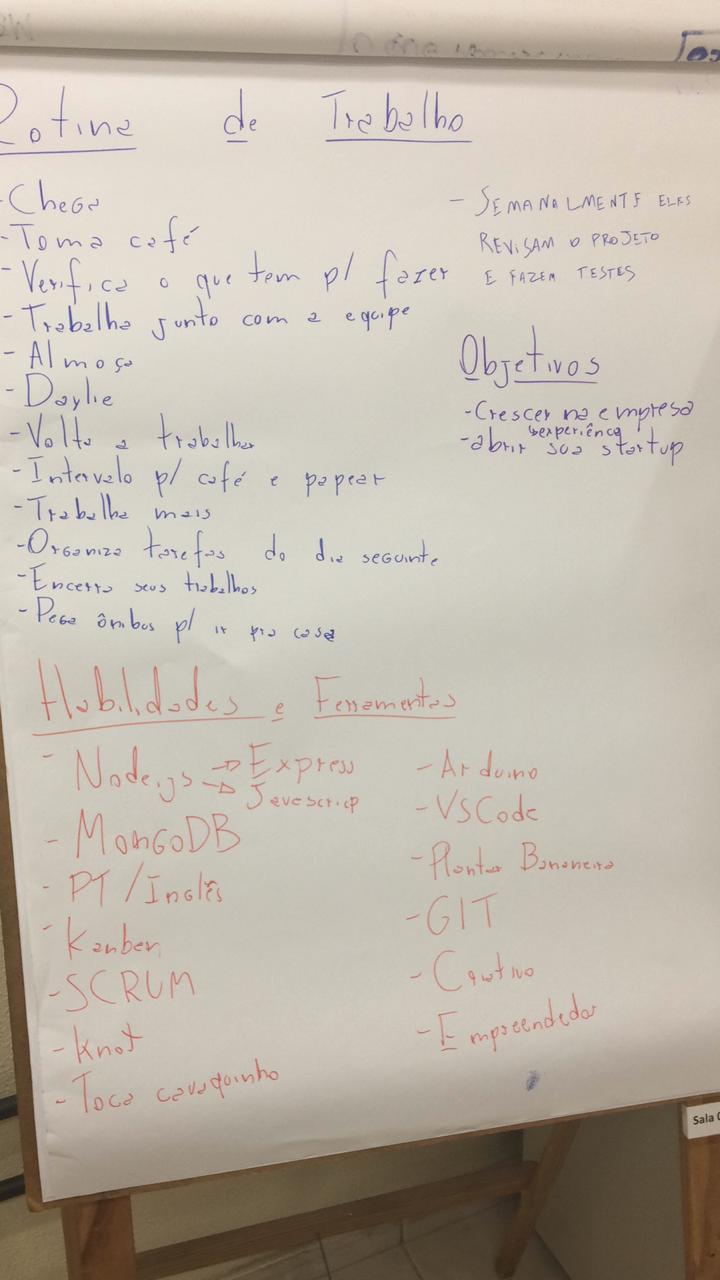 Rotina de Trabalho
- Chega
- Toma café
- Verifica o que tem p/ fazer
- Trabalha junto com a equipe
- Almoça
- Daylie
- Volta a trabalhar
- Intervalo p/ café e papear
- Trabalha mais
- Organiza tarefas do dia seguinte
- Encerra seus trabalhos
- Pega ônibus p/ ir pra casa
- SEMANALMENTE ELES
REVISAM O PROJETO
E FAZEM TESTES
Objetivos
- Crescer na empresa
experiência
- abrir sua startup
Habilidades e Ferramentas
- Node.js → Express
→ Javascrip
- MongoDB
- PT/Inglês
- Kanban
- SCRUM
- Knot
- Toca cavaquinho
- Arduino
- VSCode
- Plantar Bananeira
- GIT
- Criativo
- Empreendedor
Sala